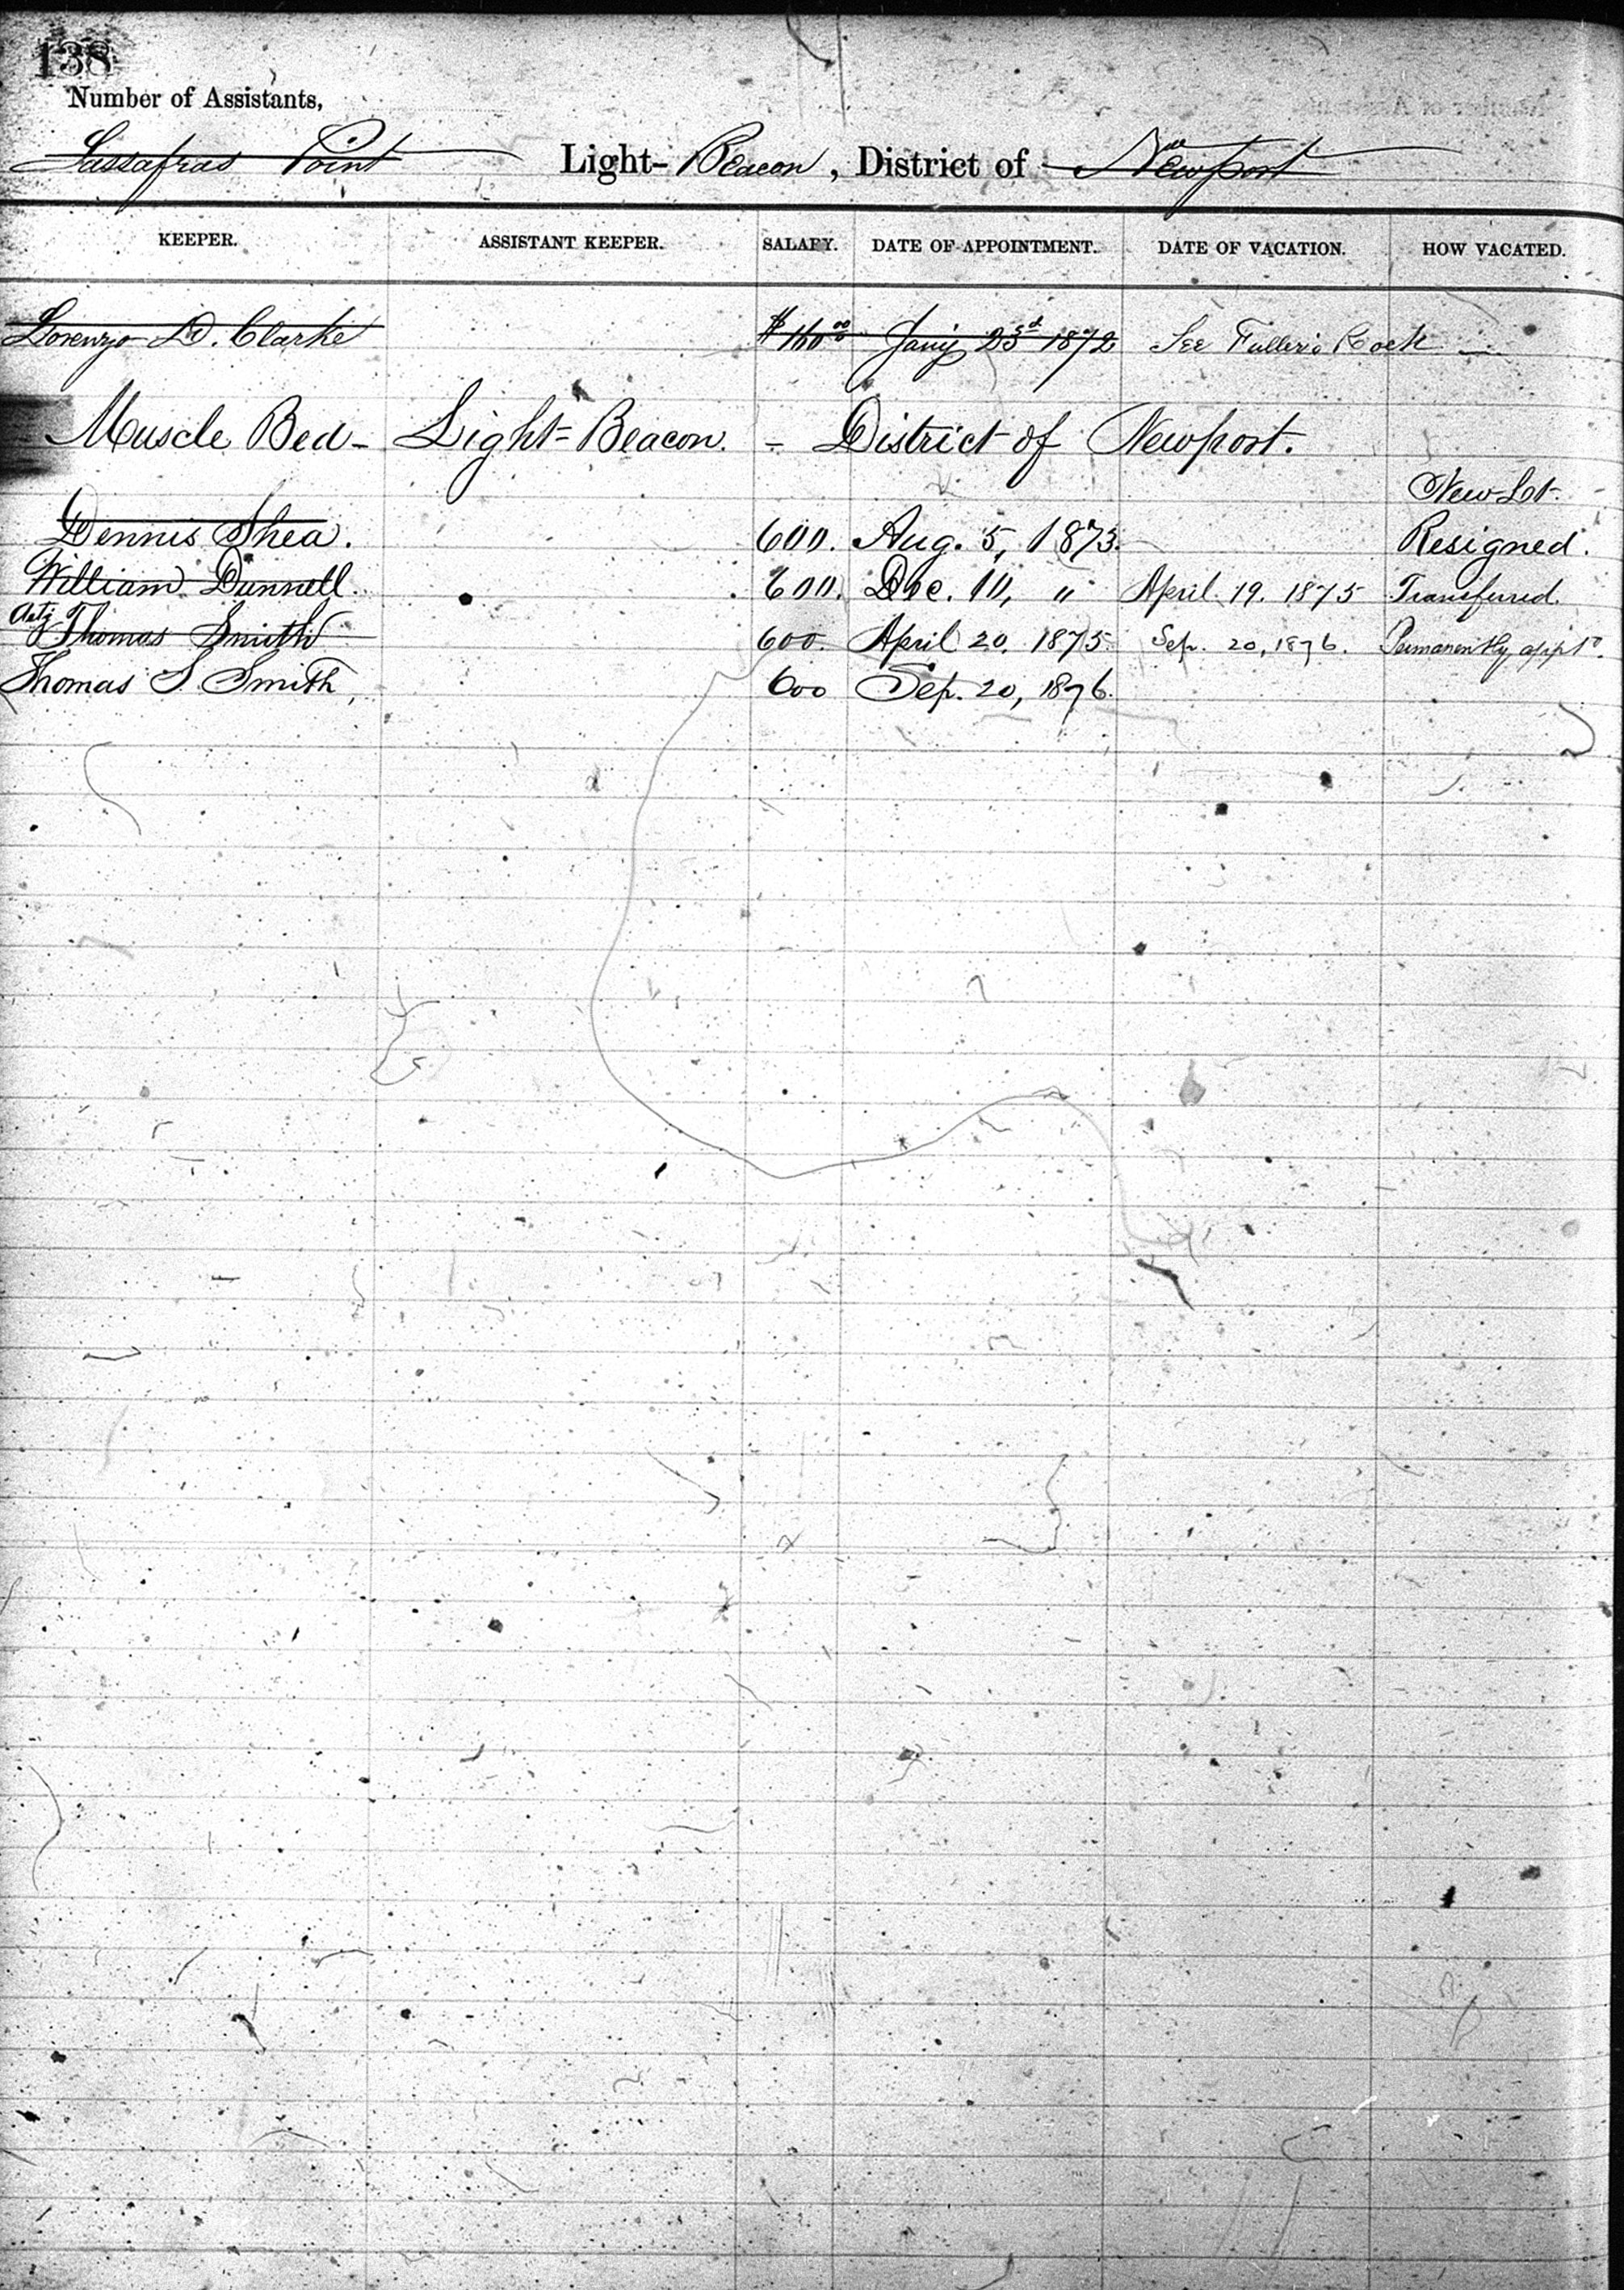 138
Number of Assistants,
Sassafras Point Light-Beacon, District of Newport
KEEPER. ASSISTANT KEEPER. SALARY. DATE OF APPOINTMENT. DATE OF VACATION. HOW VACATED.
Lorenzo D. Clarke $160 00 Jany 23d 1872 See Fuller's Rock
Muscle Bed - Light-Beacon. - District of Newport.
New Lt.
Dennis Shea. 600. Aug. 5, 1873. Resigned.
William Dunnell. 600. Dec. 10, " April 19. 1875 Transferred.
Actg Thomas Smith 600. April 20, 1875. Sep. 20, 1876. Permanently appt'd.
Thomas S. Smith, 600 Sep. 20, 1876.